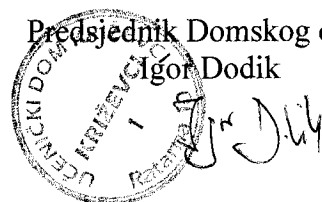 Predsjednik Domskog
Igor Dodik
UČENIČKI DOM
KRIŽEVCI
1